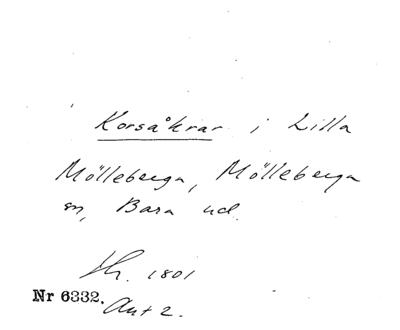 Korsåkrar i Lilla
Mölleberga, Mölleberga
sn, Bara hd.
Sk. 1801
Nr 6332.
Ant 2.